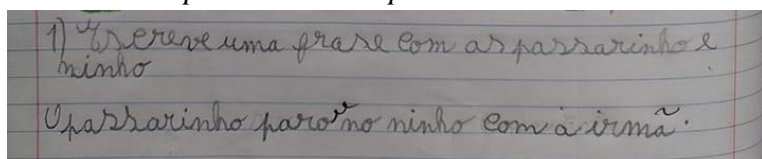 1) Escreve uma frase com as passarinho e
ninho
O passarinho paro no ninho com à irmã.